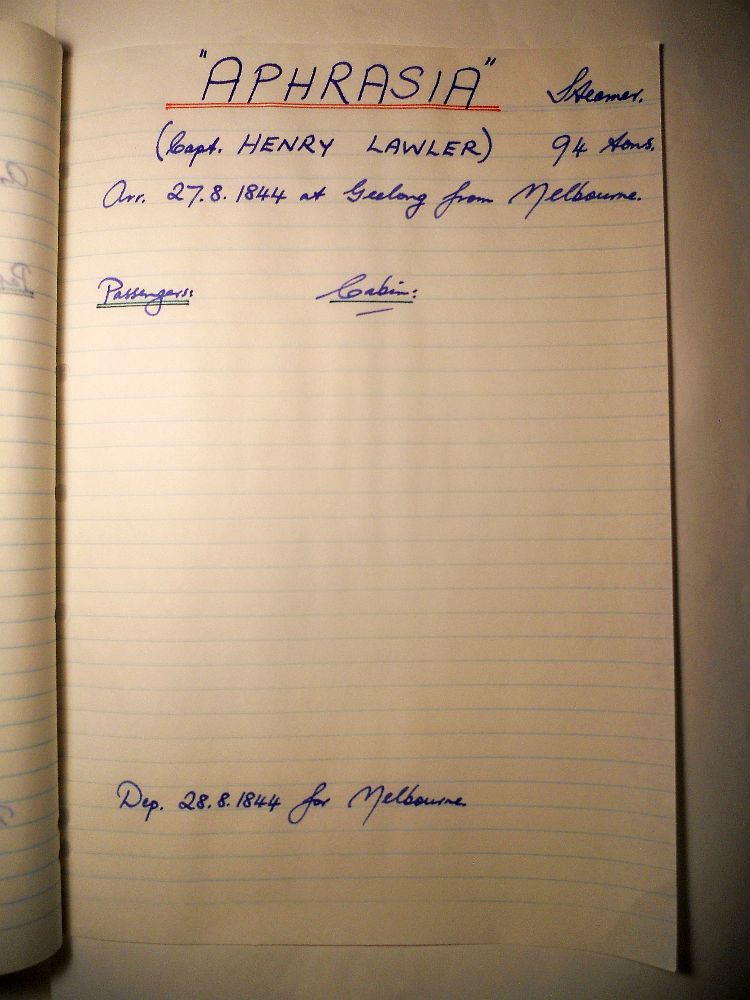 "APHRASIA" Steamer.
(Capt. HENRY LAWLER) 94 tons.
Arr. 27.8.1844 at Geelong from Melbourne.
Passengers: Cabin:
Dep. 28.8.1844 for Melbourne